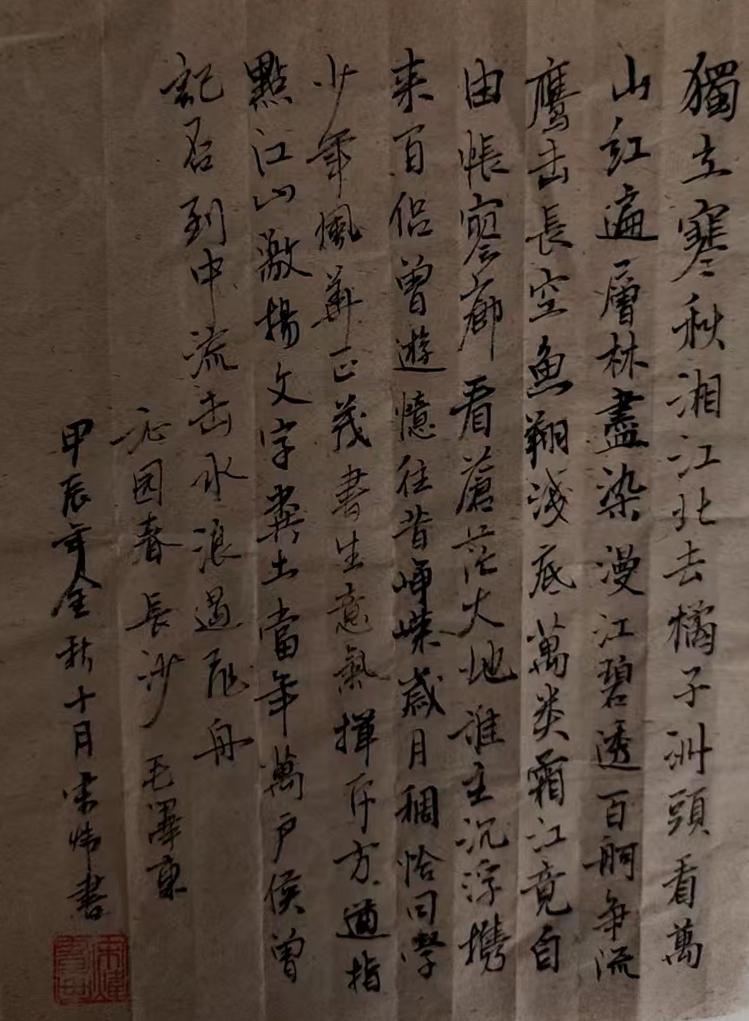 獨立寒秋湘江北去橘子洲頭看萬
山紅遍層林盡染漫江碧透百舸争流
鷹击長空魚翔浅底萬类霜江竟自
由帳寥廓看蒼茫大地誰主沉浮携
来百侣曾遊憶往昔崢嶸歲月稠恰同學
少年風華正茂書生意氣揮斥方遒指
點江山激揚文字糞土當年萬户侯曾
記否到中流击水浪遏飛舟
沁园春長沙 毛澤東
甲辰年金秋十月宋炜書